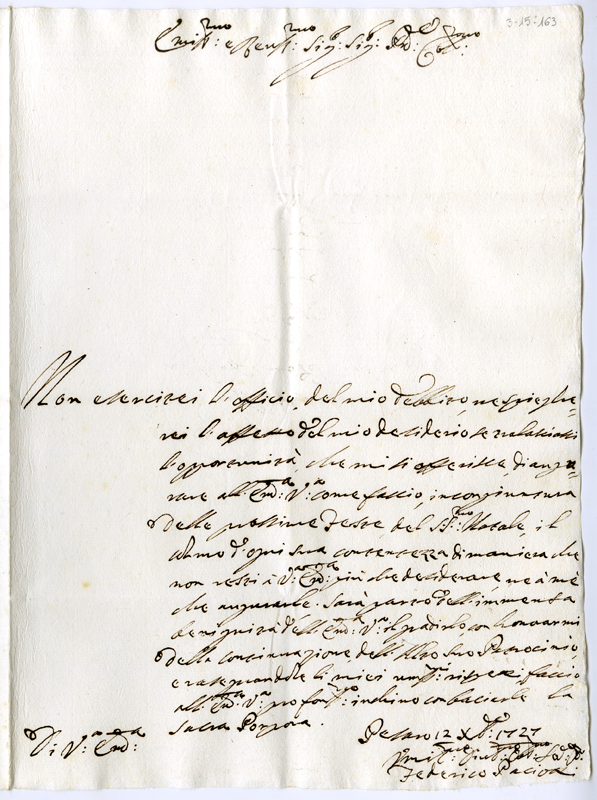 3-15:163
Emin:mo e Reu:mo Sig:r Sig:r P̄rōn Col:mo
Non esercitei l'officio, del mio debbito, ne spieghe=
rei l'affetto del mio desiderio se tralasciassi
l'opportunità, che mi si offerisce, di augu=
rare all' Em̄a: V:a come faccio, in congiuntura
delle prossime Feste, del SS:mo Natale, il
colmo d'ogni sua contentezza di maniera che
non resti à V:a Em̄a: più che desiderare, ne à mè
che augurarle. Sarà parto dell'immensa
benignità dell' Em̄a: V:a il gradirlo, con honorarmi
della continuazione dell' Alto suo Patrocinio,
e rassegnandole li miei umil:mi rispetti faccio
all' Em̄a: V:a profon:mo inchino con baciarle la
Sacra Porpora.
Pesaro 12 Xb:re 1727
Di V:a Em̄a:
Federico Paciotti